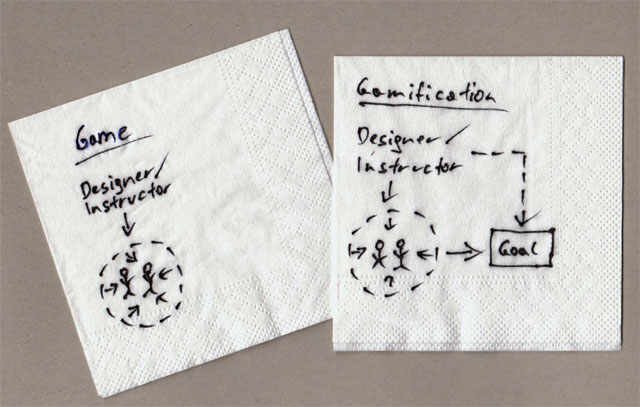 Game
Designer/
Instructor
Gamification
Designer/
Instructor
Goal